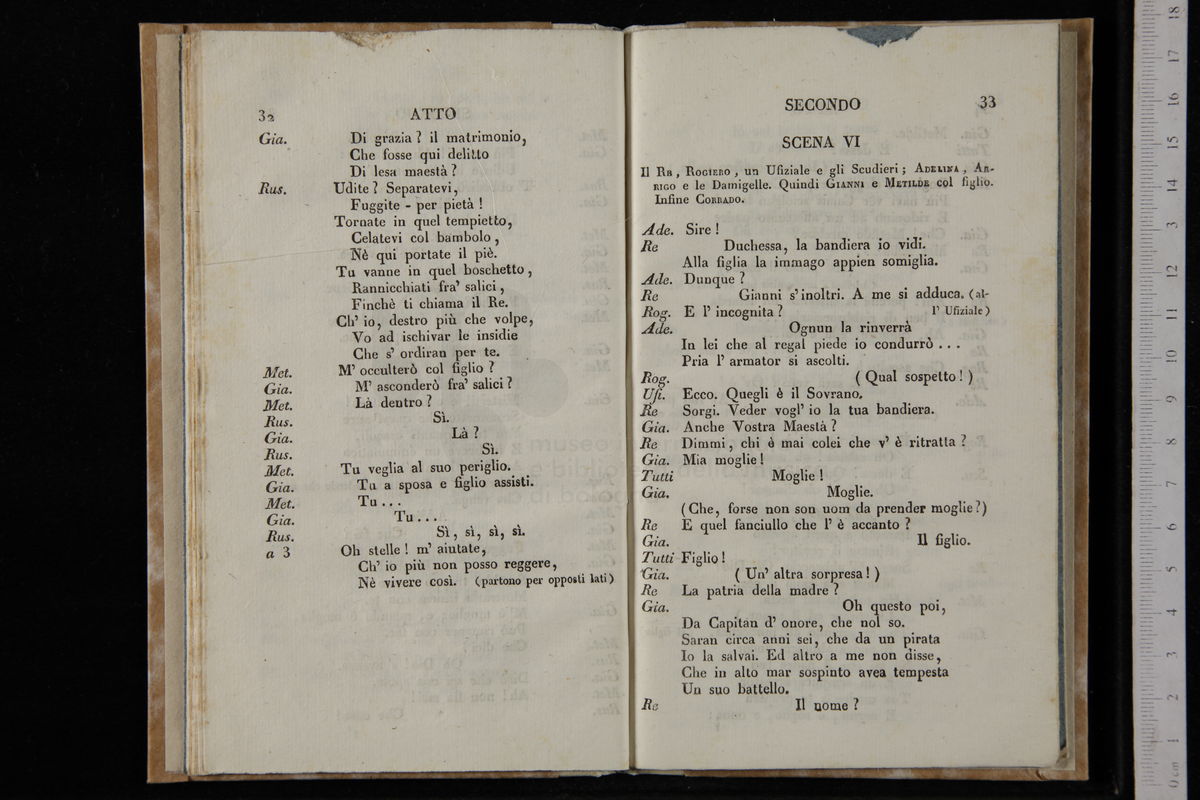 32 ATTO
Gia. Di grazia ? il matrimonio,
Che fosse qui delitto
Di lesa maestà ?
Rus. Udite ? Separatevi,
Fuggite - per pietà !
Tornate in quel tempietto,
Celatevi col bambolo,
Nè qui portate il piè.
Tu vanne in quel boschetto,
Rannicchiati fra' salici,
Finchè ti chiama il Re.
Ch' io, destro più che volpe,
Vo ad ischivar le insidie
Che s' ordiran per te.
Met. M' occulterò col figlio ?
Gia. M' asconderò fra' salici ?
Met. Là dentro ?
Rus. Sì.
Gia. Là ?
Rus. Sì.
Met. Tu veglia al suo periglio.
Gia. Tu a sposa e figlio assisti.
Met. Tu . . .
Gia. Tu . . .
Rus. Sì, sì, sì, sì.
a 3 Oh stelle ! m' aiutate,
Ch' io più non posso reggere,
Nè vivere così. (partono per opposti lati)
SECONDO 33
SCENA VI
Il Re, Rogiero, un Ufiziale e gli Scudieri ; Adelina, Ar-
rigo e le Damigelle. Quindi Gianni e Metilde col figlio.
Infine Corrado.
Ade. Sire !
Re Duchessa, la bandiera io vidi.
Alla figlia la immago appien somiglia.
Ade. Dunque ?
Re Gianni s' inoltri. A me si adduca. (al-
Rog. E l' incognita ? l' Ufiziale)
Ade. Ognun la rinverrà
In lei che al regal piede io condurrò . . .
Pria l' armator si ascolti.
Rog. ( Qual sospetto ! )
Ufi. Ecco. Quegli è il Sovrano.
Re Sorgi. Veder vogl' io la tua bandiera.
Gia. Anche Vostra Maestà ?
Re Dimmi, chi è mai colei che v' è ritratta ?
Gia. Mia moglie !
Tutti Moglie !
Gia. Moglie.
(Che, forse non son uom da prender moglie?)
Re E quel fanciullo che l' è accanto ?
Gia. Il figlio.
Tutti Figlio !
Gia. ( Un' altra sorpresa ! )
Re La patria della madre ?
Gia. Oh questo poi,
Da Capitan d' onore, che nol so.
Saran circa anni sei, che da un pirata
Io la salvai. Ed altro a me non disse,
Che in alto mar sospinto avea tempesta
Un suo battello.
Re Il nome ?